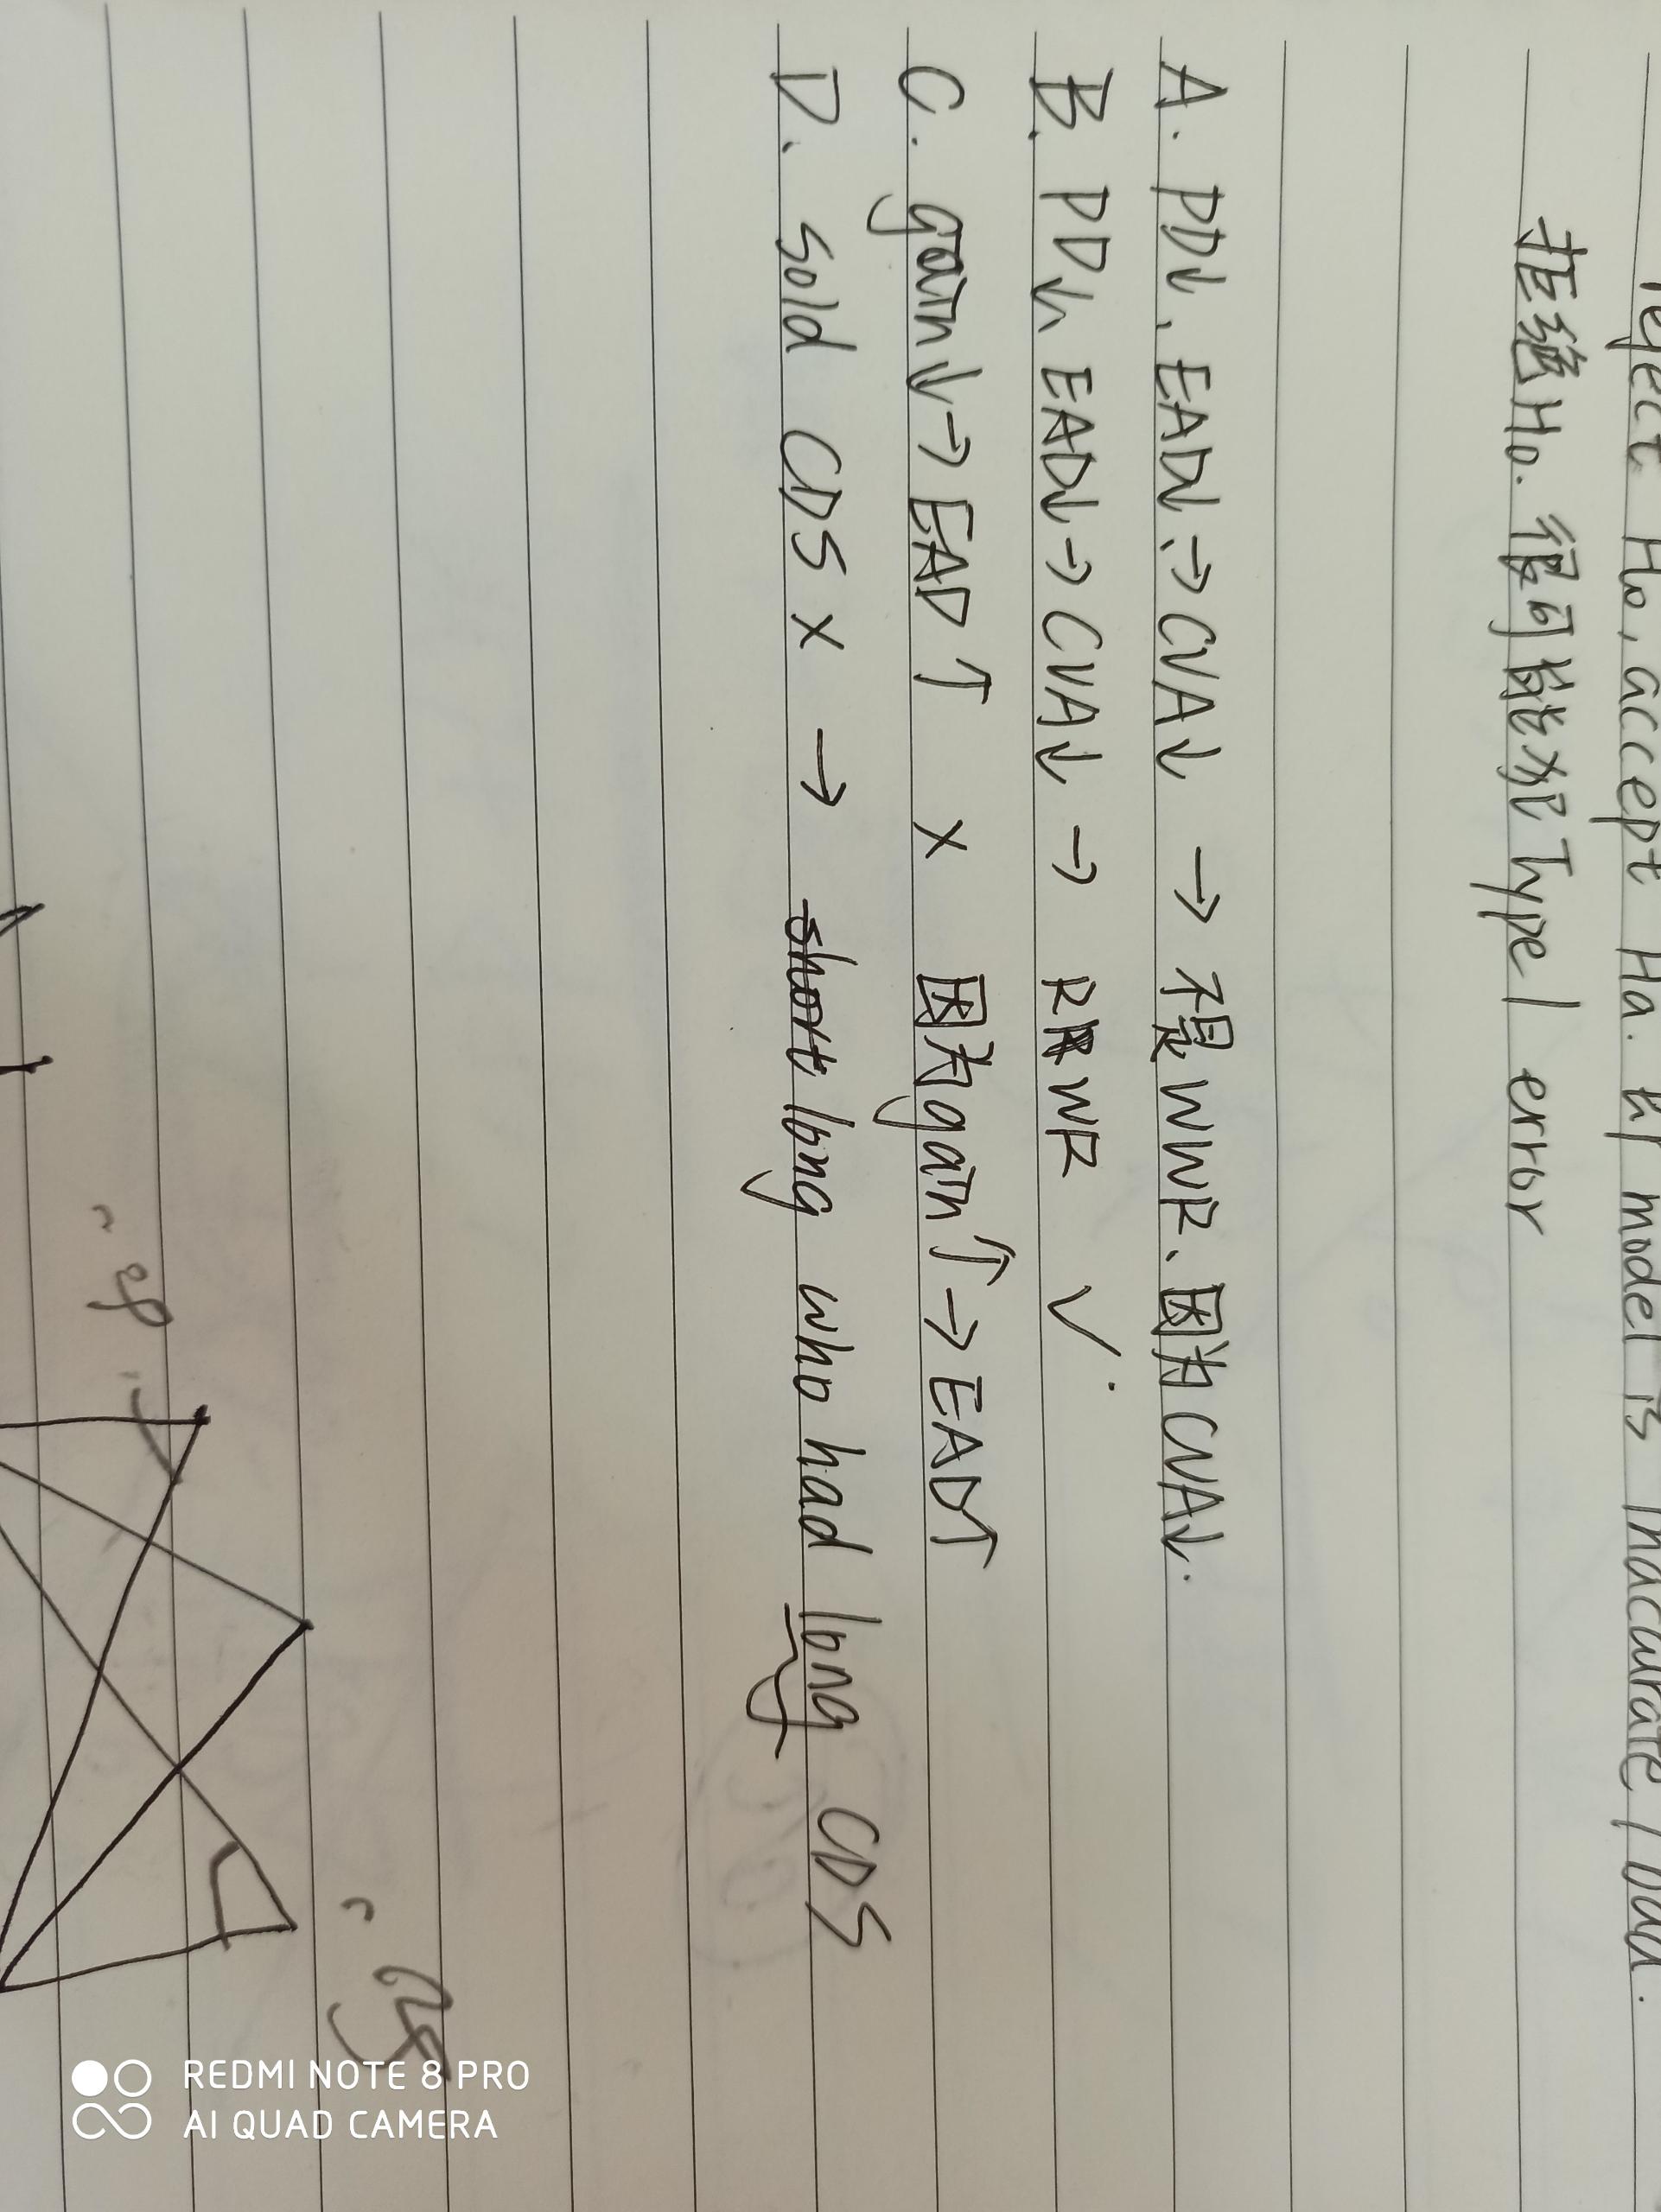 reject Ho, accept Ha. model is inaccurate / bad.
拒绝Ho. 很可能犯Type 1 error
A. PD↓, EAD↓ → CVA↓ → 不是WWR、因为CVA↓.
B. PD↓, EAD↓ → CVA↓ → RWR ✓.
C. gain↓ → EAD ↑ × 因为gain↑ → EAD↑
D. sold CDS × → short long who had long CDS
REDMI NOTE 8 PRO
AI QUAD CAMERA